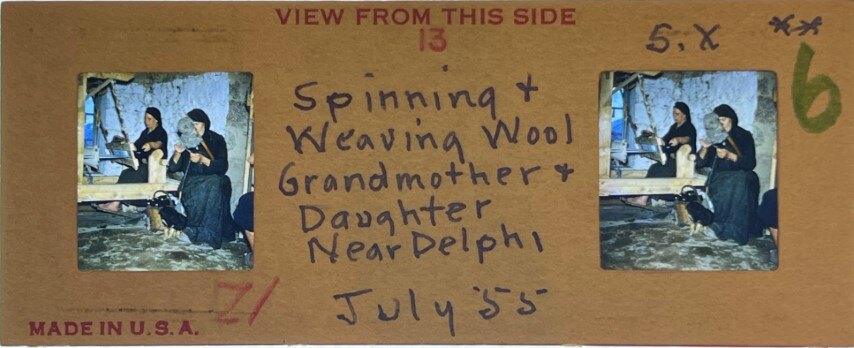 VIEW FROM THIS SIDE
13
5.X
**
6
Spinning +
Weaving Wool
Grandmother +
Daughter
Near Delphi
July '55
21
MADE IN U.S.A.